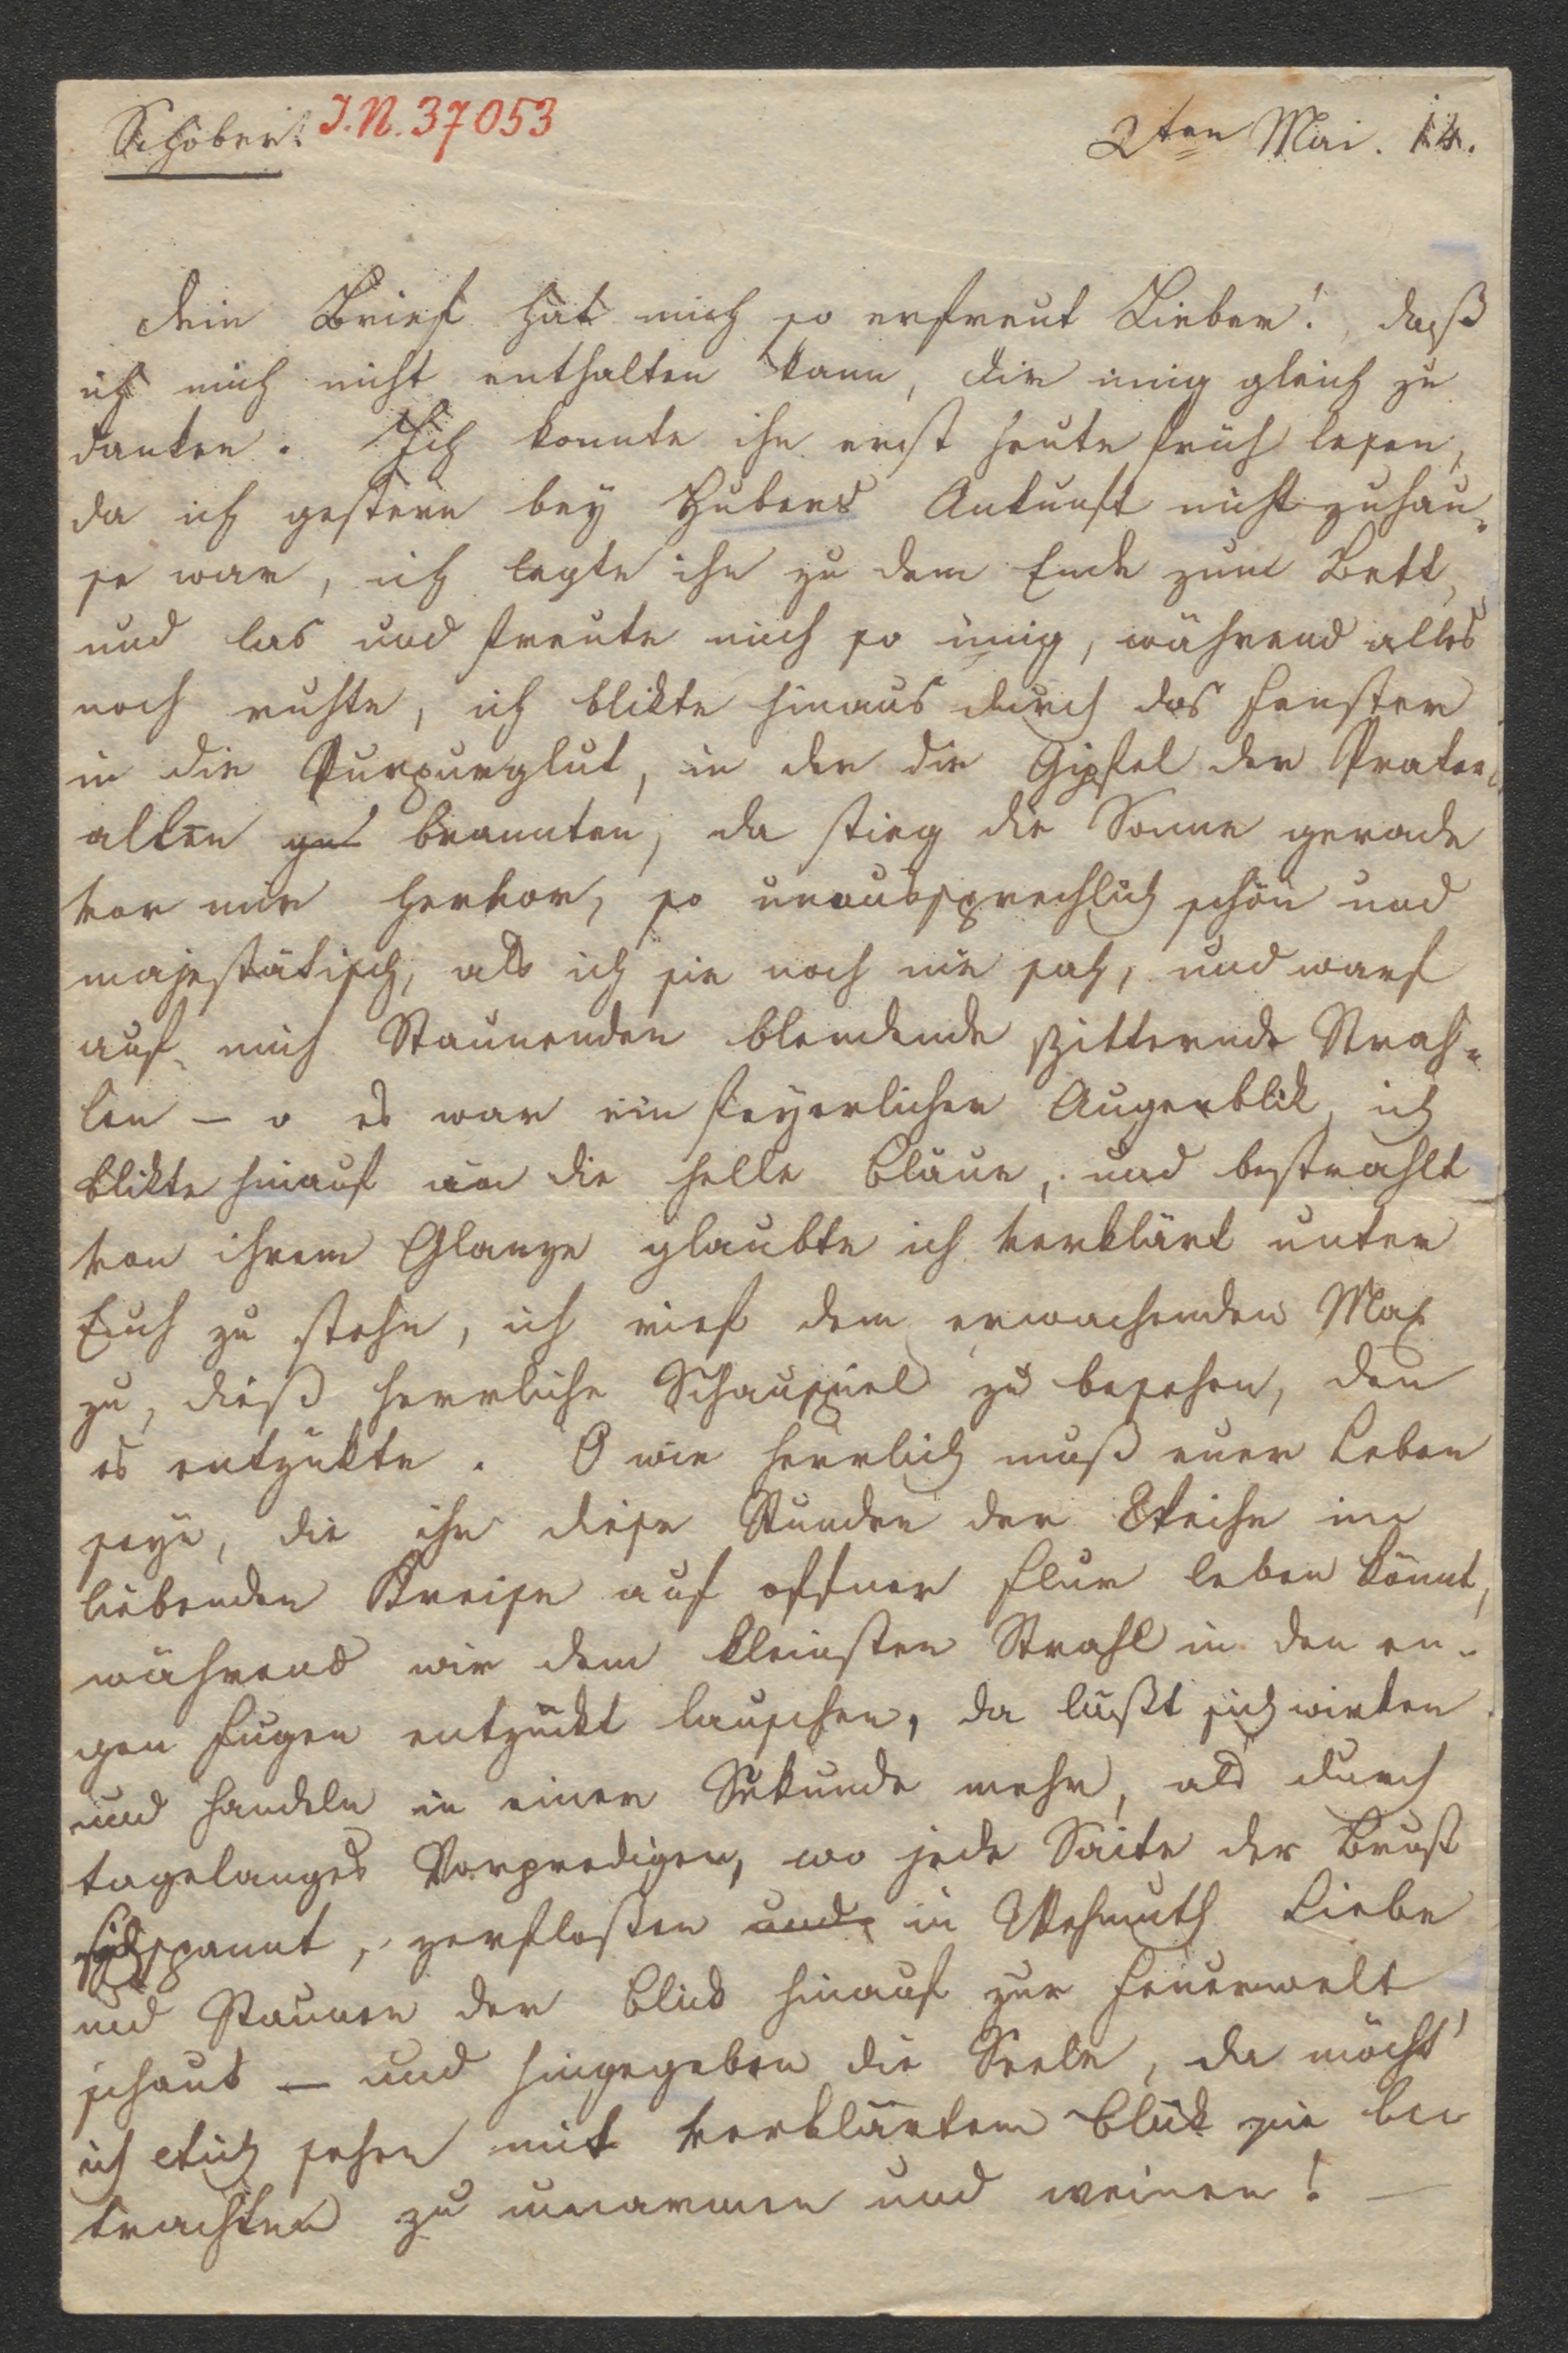 Schober. J.N. 37053
2ten Mai. 14.
dein Brief hat mich so erfreut Lieber!, daß
ich mich nicht enthalten kann, dir innig gleich zu
danken. Ich konnte ihn erst heute früh lesen,
da ich gestern bey Hubers Ankunft nicht zuhau-
se war, ich legte ihn zu dem Ende zum Bett,
und las und freute mich so innig, während alles
noch ruhte, ich blikte hinaus durch das Fenster
in die Purpurglut, in der die Gipfel der Prater-
alleen brannten, da stieg die Sonne gerade
vor mir hervor, so unaussprechlich schön und
majestätisch, als ich sie noch nie sah, und warf
auf mich Staunenden blendende zitternde Strah-
len – o es war ein feyerlicher Augenblik, ich
blikte hinauf in die helle Bläue, und bestrahlt
von ihrem Glanze glaubte ich verklärt unter
Euch zu stehn, ich rief dem erwachenden Max
zu, dieß herrliche Schauspiel zu besehen, den
es entzükte. O wie herrlich muß euer Leben
seyn, die ihr diese Stunden der Weihe im
liebenden Kreise auf offner Flur leben könnt,
während wir dem kleinsten Strahl in den en-
gen Fugen entzückt lauschen, da läßt sich wirken
und handeln in einer Sekunde mehr, als durch
tagelanges Vorpredigen, wo jede Saite der Brust
spannt, zerfloßen und in Wehmuth Liebe
und Staunen der Blick hinauf zur Feuerwelt
schaut – und hingegeben die Seele, da möcht'
ich euch sehen mit verklärtem Blik sie be
trachten zu umarmen und weinen! –